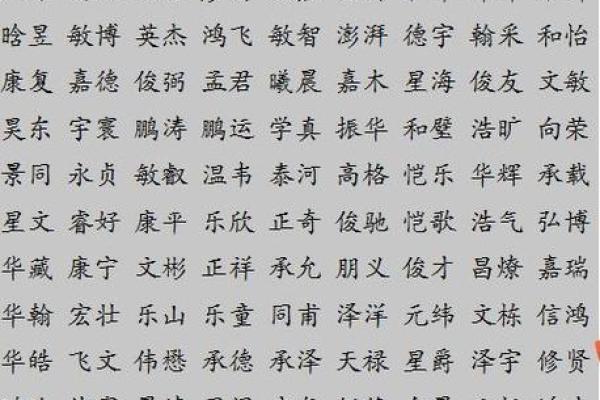 晗昱 敏博 英杰 鸿飞 敏智 澎湃 德宇 翰采 和怡
康复 嘉德 俊弼 孟君 曦晨 嘉木 星海 俊友 文敏
昊东 宇寰 鹏涛 鹏运 学真 振华 和璧 浩旷 向荣
景同 永贞 敏叡 温韦 泰河 高格 恺乐 华辉 承载
星文 睿好 康平 乐欣 正奇 俊驰 恺歌 浩气 弘博
华藏 康宁 文彬 正祥 承允 朋义 俊才 昌燎 嘉瑞
华翰 宏壮 乐山 乐童 同甫 泽洋 元纬 文栋 信鸿
华皓 飞文 伟懋 承德 承泽 天禄 星爵 泽宇 修贤